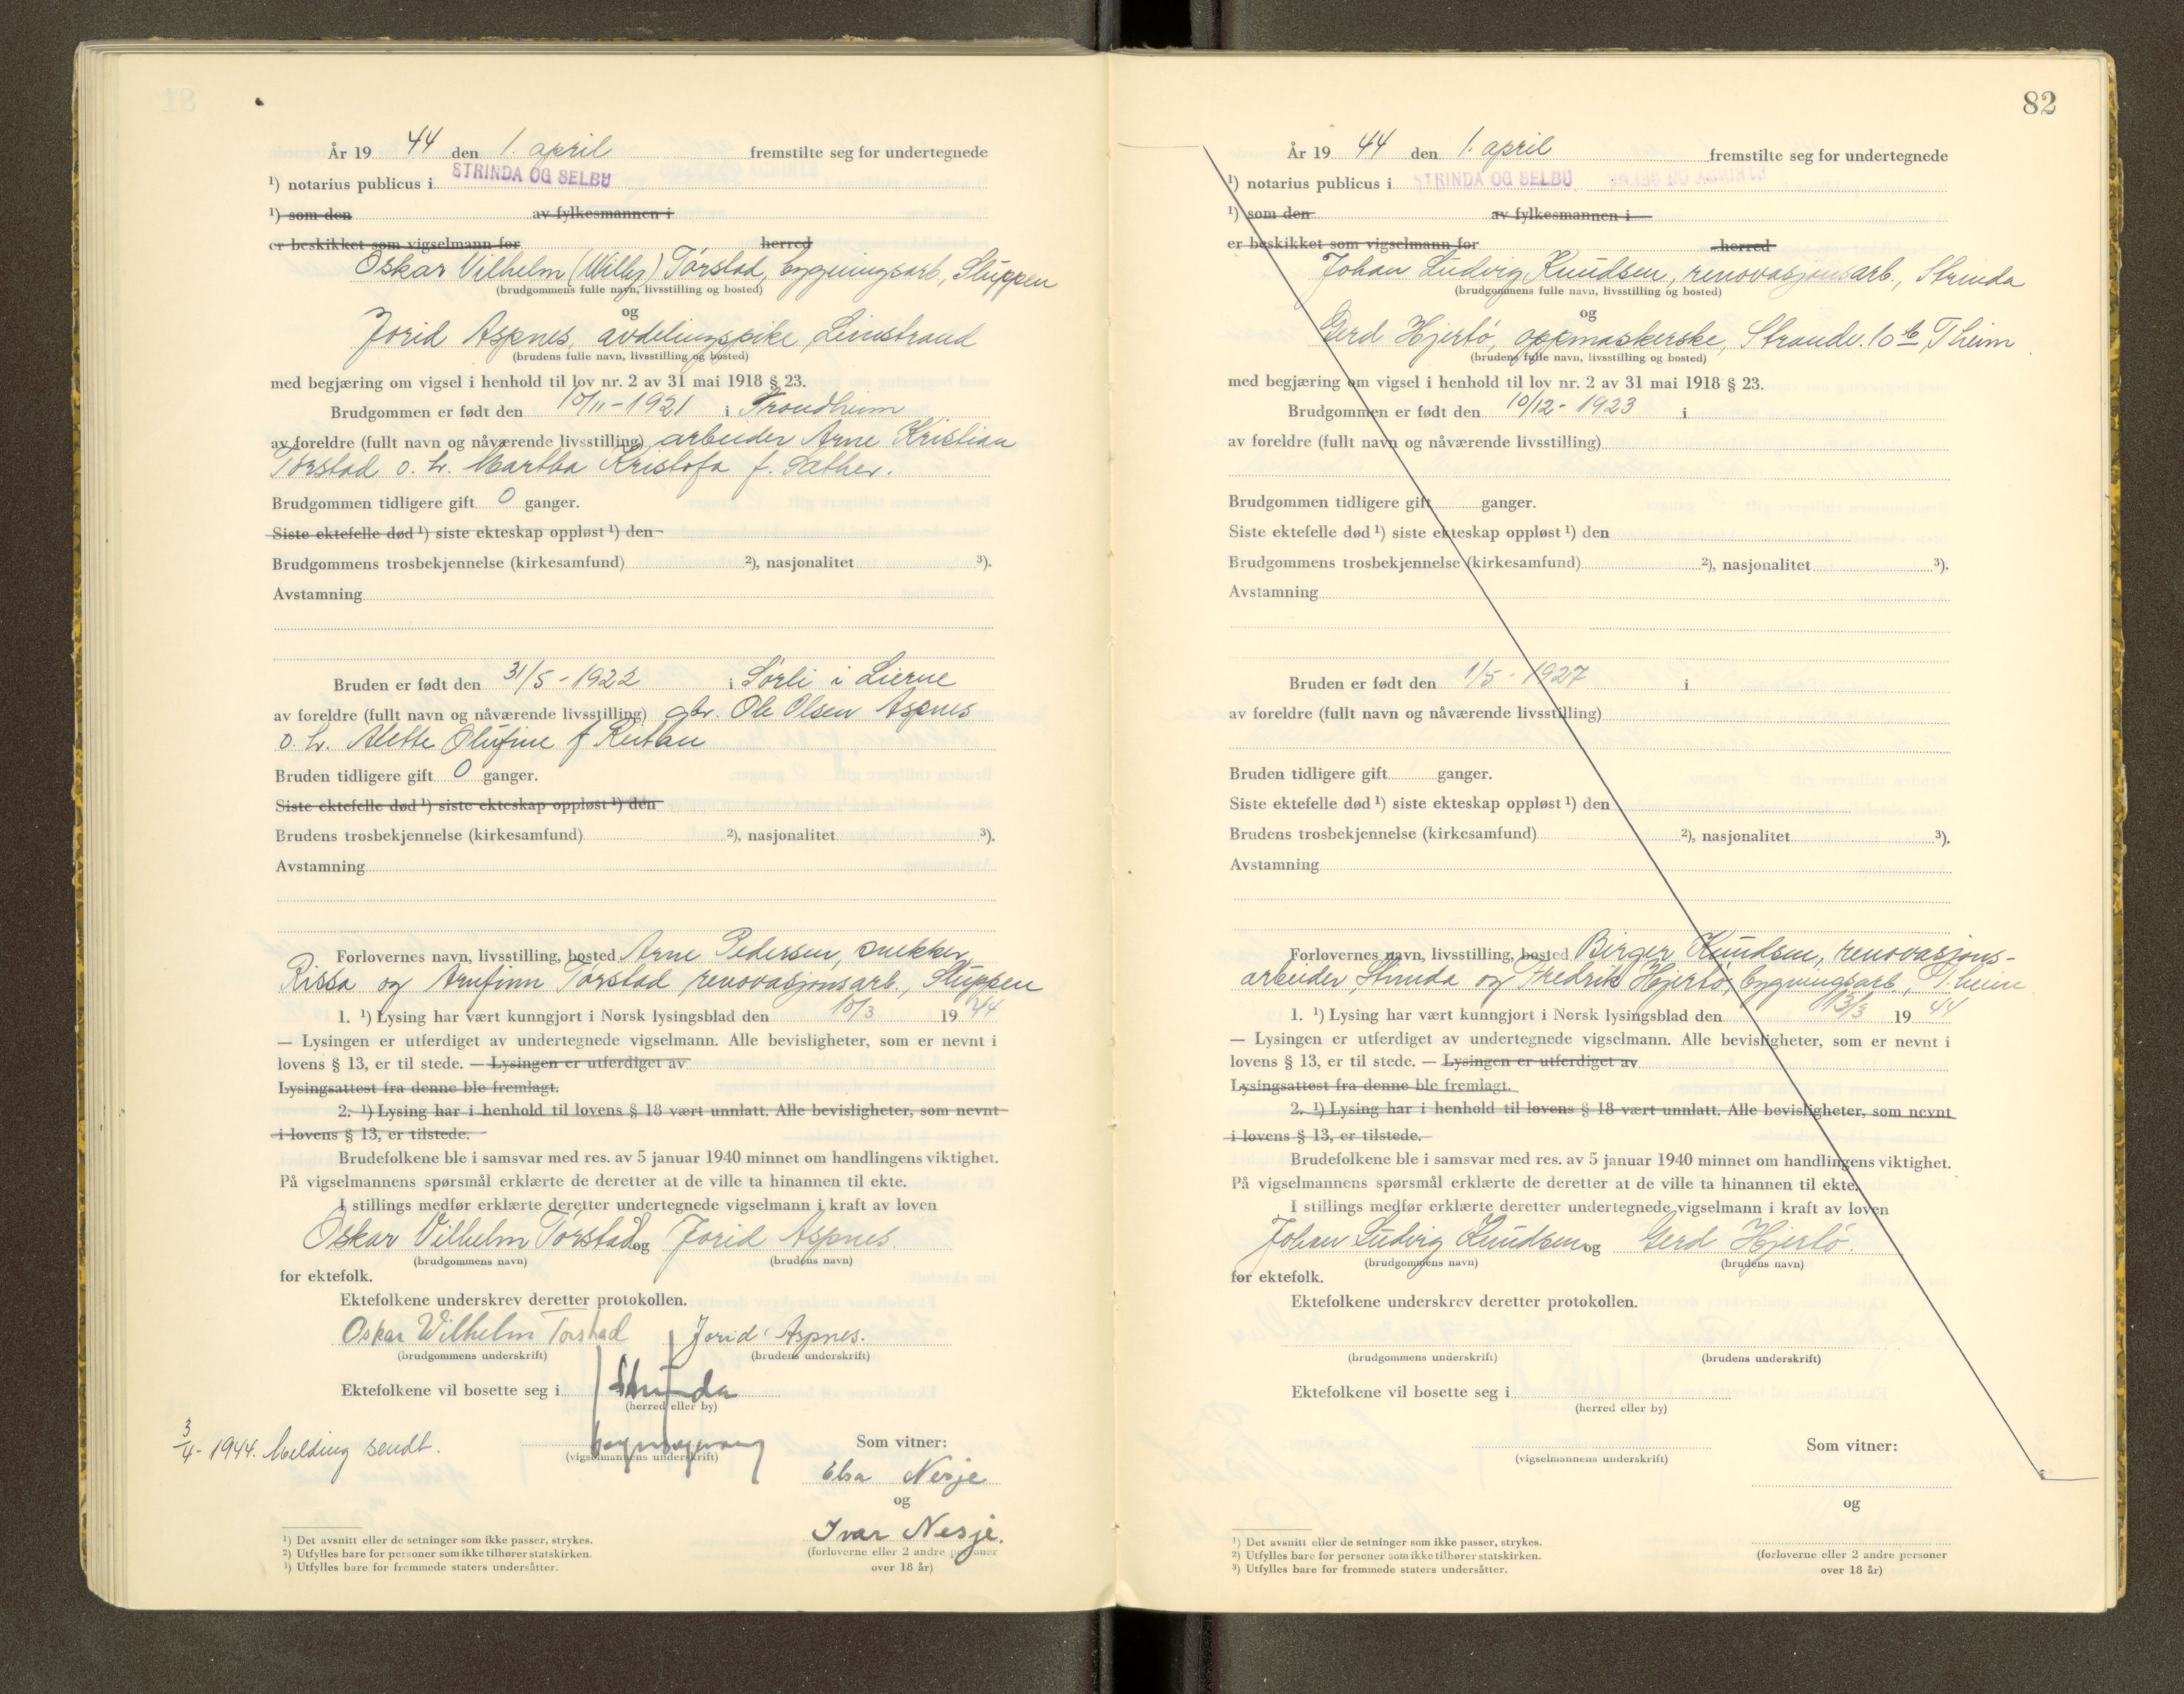 År 19 44 den 1. april fremstilte seg for undertegnede
¹) notarius publicus i STRINDA OG SELBU
¹) som den av fylkesmannen i
er beskikket som vigselmann for herred
Oskar Vilhelm (Willy) Torstad, bygningsarb., Sluppen
(brudgommens fulle navn, livsstilling og bosted)
og
Jorid Aspnes, avdelingspike, Leinstrand
(brudens fulle navn, livsstilling og bosted)
med begjæring om vigsel i henhold til lov nr. 2 av 31 mai 1918 § 23.
Brudgommen er født den 10/11-1921 i Trondheim
av foreldre (fullt navn og nåværende livsstilling) arbeider Arne Kristian
Torstad o. h. Martha Kristofa f. Sæther.
Brudgommen tidligere gift 0 ganger.
Siste ektefelle død ¹) siste ekteskap oppløst ¹) den
Brudgommens trosbekjennelse (kirkesamfund) ²), nasjonalitet ³).
Avstamning
Bruden er født den 31/5-1922 i Sørli i Lierne
av foreldre (fullt navn og nåværende livsstilling) gbr. Ole Olsen Aspnes
o. h. Alette Olufine f Rutan
Bruden tidligere gift 0 ganger.
Siste ektefelle død ¹) siste ekteskap oppløst ¹) den
Brudens trosbekjennelse (kirkesamfund) ²), nasjonalitet ³).
Avstamning
Forlovernes navn, livsstilling, bosted Arne Pedersen, snekker,
Rissa og Arnfinn Torstad renovasjonsarb., Sluppen
1. ¹) Lysing har vært kunngjort i Norsk lysingsblad den 10/3 19 44
— Lysingen er utferdiget av undertegnede vigselmann. Alle bevisligheter, som er nevnt i
lovens § 13, er til stede. — Lysingen er utferdiget av
Lysingsattest fra denne ble fremlagt.
2. ¹) Lysing har i henhold til lovens § 18 vært unnlatt. Alle bevisligheter, som nevnt
i lovens § 13, er tilstede.
Brudefolkene ble i samsvar med res. av 5 januar 1940 minnet om handlingens viktighet.
På vigselmannens spørsmål erklærte de deretter at de ville ta hinannen til ekte.
I stillings medfør erklærte deretter undertegnede vigselmann i kraft av loven
Oskar Vilhelm Torstad og Jorid Aspnes.
(brudgommens navn) (brudens navn)
for ektefolk.
Ektefolkene underskrev deretter protokollen.
Oskar Wilhelm Torstad Jorid Aspnes.
(brudgommens underskrift) (brudens underskrift)
Ektefolkene vil bosette seg i Strinda
(herred eller by)
3/4-1944. Melding sendt.
(vigselmannens underskrift) Som vitner:
Elsa Nesje
og
Ivar Nesje.
(forloverne eller 2 andre personer
over 18 år)
¹) Det avsnitt eller de setninger som ikke passer, strykes.
²) Utfylles bare for personer som ikke tilhører statskirken.
³) Utfylles bare for fremmede staters undersåtter.
82
År 19 44 den 1. april fremstilte seg for undertegnede
¹) notarius publicus i STRINDA OG SELBU
¹) som den av fylkesmannen i
er beskikket som vigselmann for herred
Johan Ludvig Knudsen, renovasjonsarb., Strinda
(brudgommens fulle navn, livsstilling og bosted)
og
Gerd Hjertø, oppmaskerske, Strandv. 10 b T.heim
(brudens fulle navn, livsstilling og bosted)
med begjæring om vigsel i henhold til lov nr. 2 av 31 mai 1918 § 23.
Brudgommen er født den 10/12-1923 i
av foreldre (fullt navn og nåværende livsstilling)
Brudgommen tidligere gift ganger.
Siste ektefelle død ¹) siste ekteskap oppløst ¹) den
Brudgommens trosbekjennelse (kirkesamfund) ²), nasjonalitet ³).
Avstamning
Bruden er født den 1/5-1927 i
av foreldre (fullt navn og nåværende livsstilling)
Bruden tidligere gift ganger.
Siste ektefelle død ¹) siste ekteskap oppløst ¹) den
Brudens trosbekjennelse (kirkesamfund) ²), nasjonalitet ³).
Avstamning
Forlovernes navn, livsstilling, bosted Birger Knudsen, renovasjons-
arbeider, Strinda og Fredrik Hjertø, bygningsarb., T.heim
1. ¹) Lysing har vært kunngjort i Norsk lysingsblad den 13/3 19 44
— Lysingen er utferdiget av undertegnede vigselmann. Alle bevisligheter, som er nevnt i
lovens § 13, er til stede. — Lysingen er utferdiget av
Lysingsattest fra denne ble fremlagt.
2. ¹) Lysing har i henhold til lovens § 18 vært unnlatt. Alle bevisligheter, som nevnt
i lovens § 13, er tilstede.
Brudefolkene ble i samsvar med res. av 5 januar 1940 minnet om handlingens viktighet.
På vigselmannens spørsmål erklærte de deretter at de ville ta hinannen til ekte.
I stillings medfør erklærte deretter undertegnede vigselmann i kraft av loven
Johan Ludvig Knudsen og Gerd Hjertø.
(brudgommens navn) (brudens navn)
for ektefolk.
Ektefolkene underskrev deretter protokollen.
(brudgommens underskrift) (brudens underskrift)
Ektefolkene vil bosette seg i
(herred eller by)
Som vitner:
(vigselmannens underskrift)
og
(forloverne eller 2 andre personer
over 18 år)
¹) Det avsnitt eller de setninger som ikke passer, strykes.
²) Utfylles bare for personer som ikke tilhører statskirken.
³) Utfylles bare for fremmede staters undersåtter.